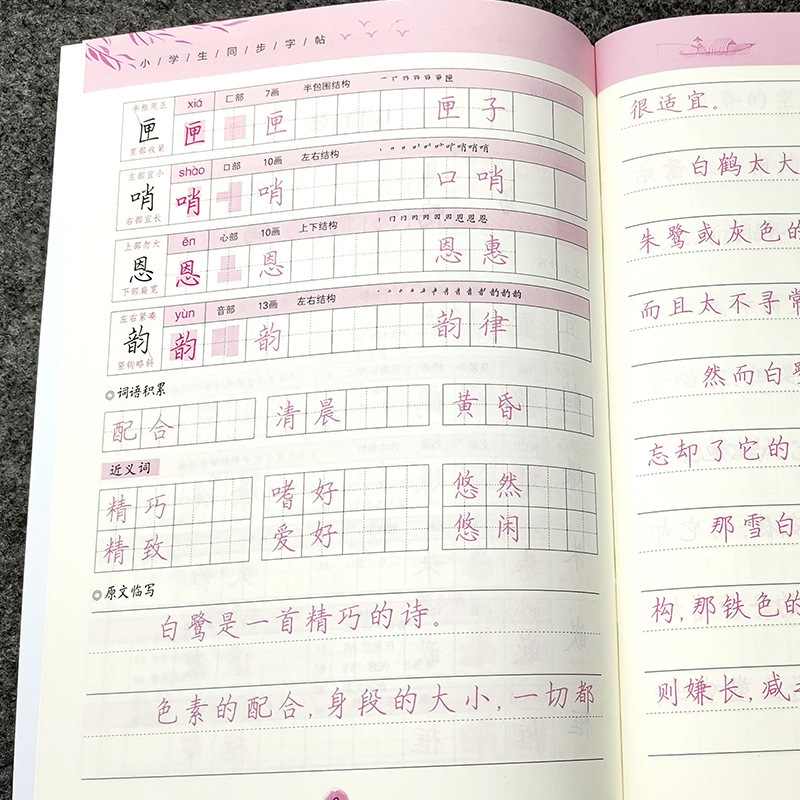 小/学/生/同/步/字/帖
半框周正 xiá 匚部 7画 半包围结构
匣 匣 匣 匣子
里部收紧
左部宜小 shào 口部 10画 左右结构
哨 哨 哨 口哨
右部宜长
上部勿大 ēn 心部 10画 上下结构
恩 恩 恩 恩惠
下部扁宽
左右紧凑 yùn 音部 13画 左右结构
韵 韵 韵 韵律
竖钩略斜
◎词语积累
配合 清晨 黄昏
近义词
精巧 嗜好 悠然
精致 爱好 悠闲
◎原文临写
白鹭是一首精巧的诗。
色素的配合,身段的大小,一切都
很适宜。
白鹤太大
朱鹭或灰色的
而且太不寻常
然而白鹭
忘却了它的
那雪白
构,那铁色的
则嫌长,减